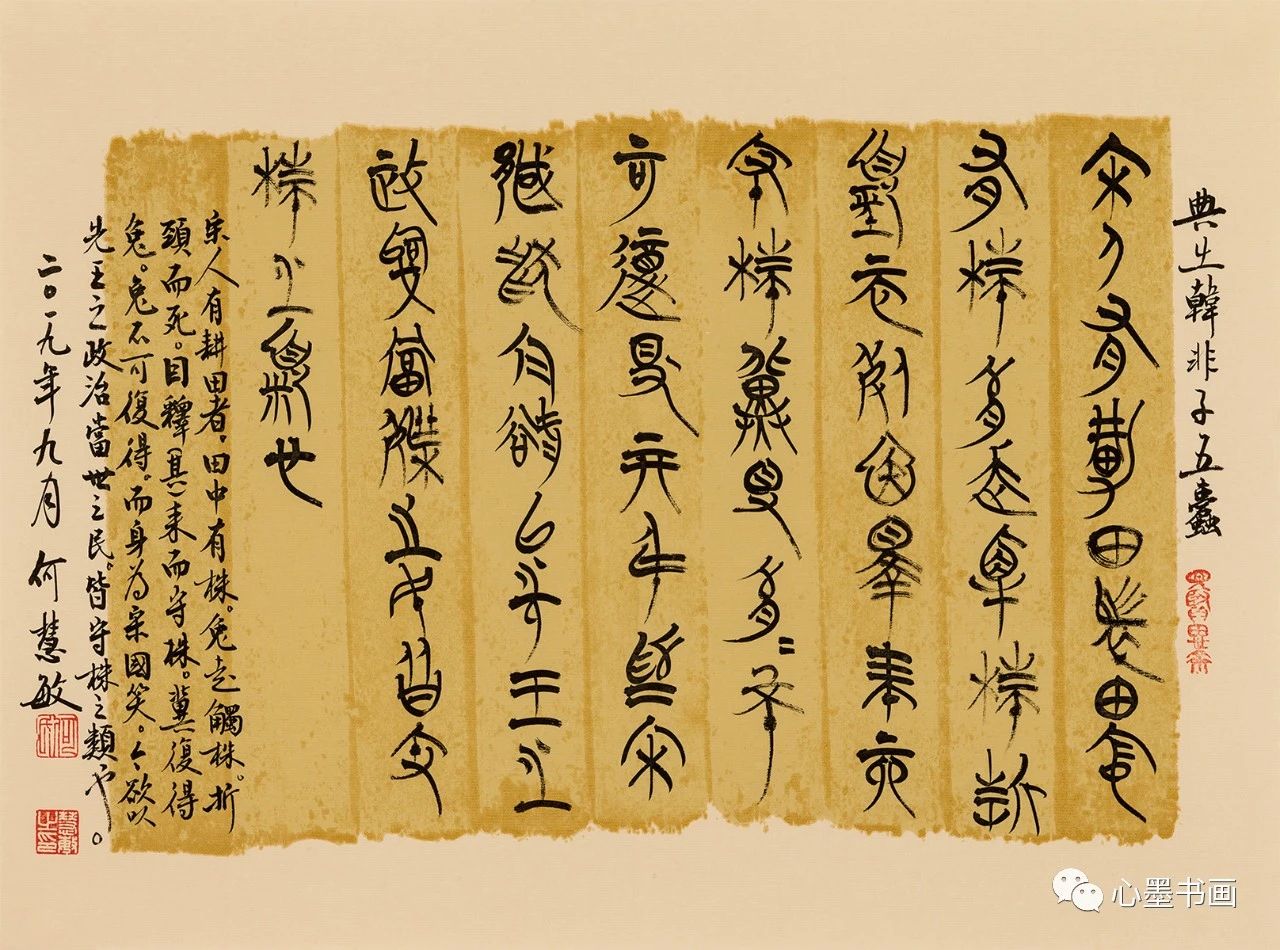 典出韓非子五蠹
宋人有耕田者田中
有株兔走觸株折
頸而死因釋耒而
守株冀得兔=不
可復得而身為宋
國笑今欲以先王之
政治當世之民皆守
株之類也
宋人有耕田者，田中有株。兔走觸株。折
頸而死。因釋(其)耒而守株。冀復得
兔。兔不可復得。而身為宋國笑。今欲以
先王之政治當世之民。皆守株之類也。
二〇一九年九月 何慧敏
慧敏之印
心墨书画